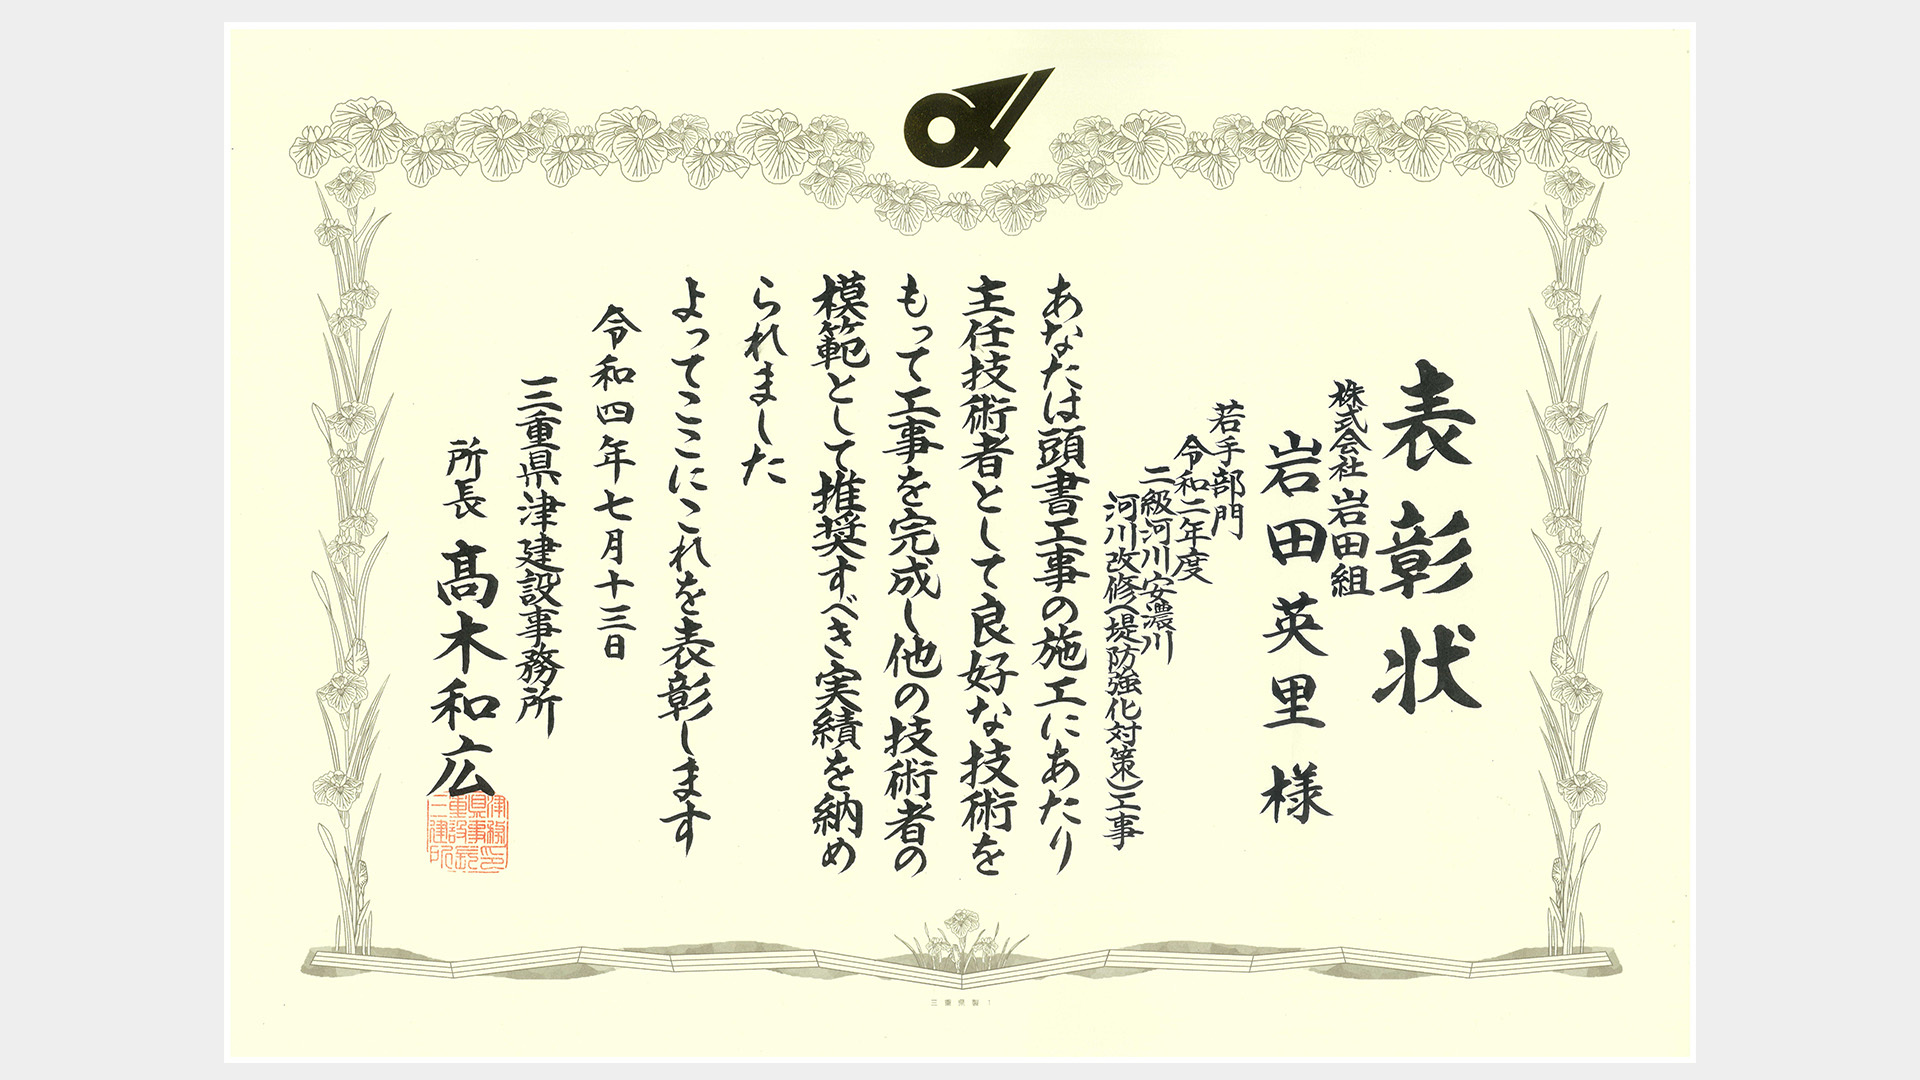 表彰状
株式会社 岩田組
岩田英里 様
若手部門
令和二年度
二級河川安濃川
河川改修(堤防強化対策)工事
あなたは頭書工事の施工にあたり
主任技術者として良好な技術を
もって工事を完成し他の技術者の
模範として推奨すべき実績を納め
られました
よってここにこれを表彰します
令和四年七月十三日
三重県津建設事務所
所長 髙木和広
三重県製